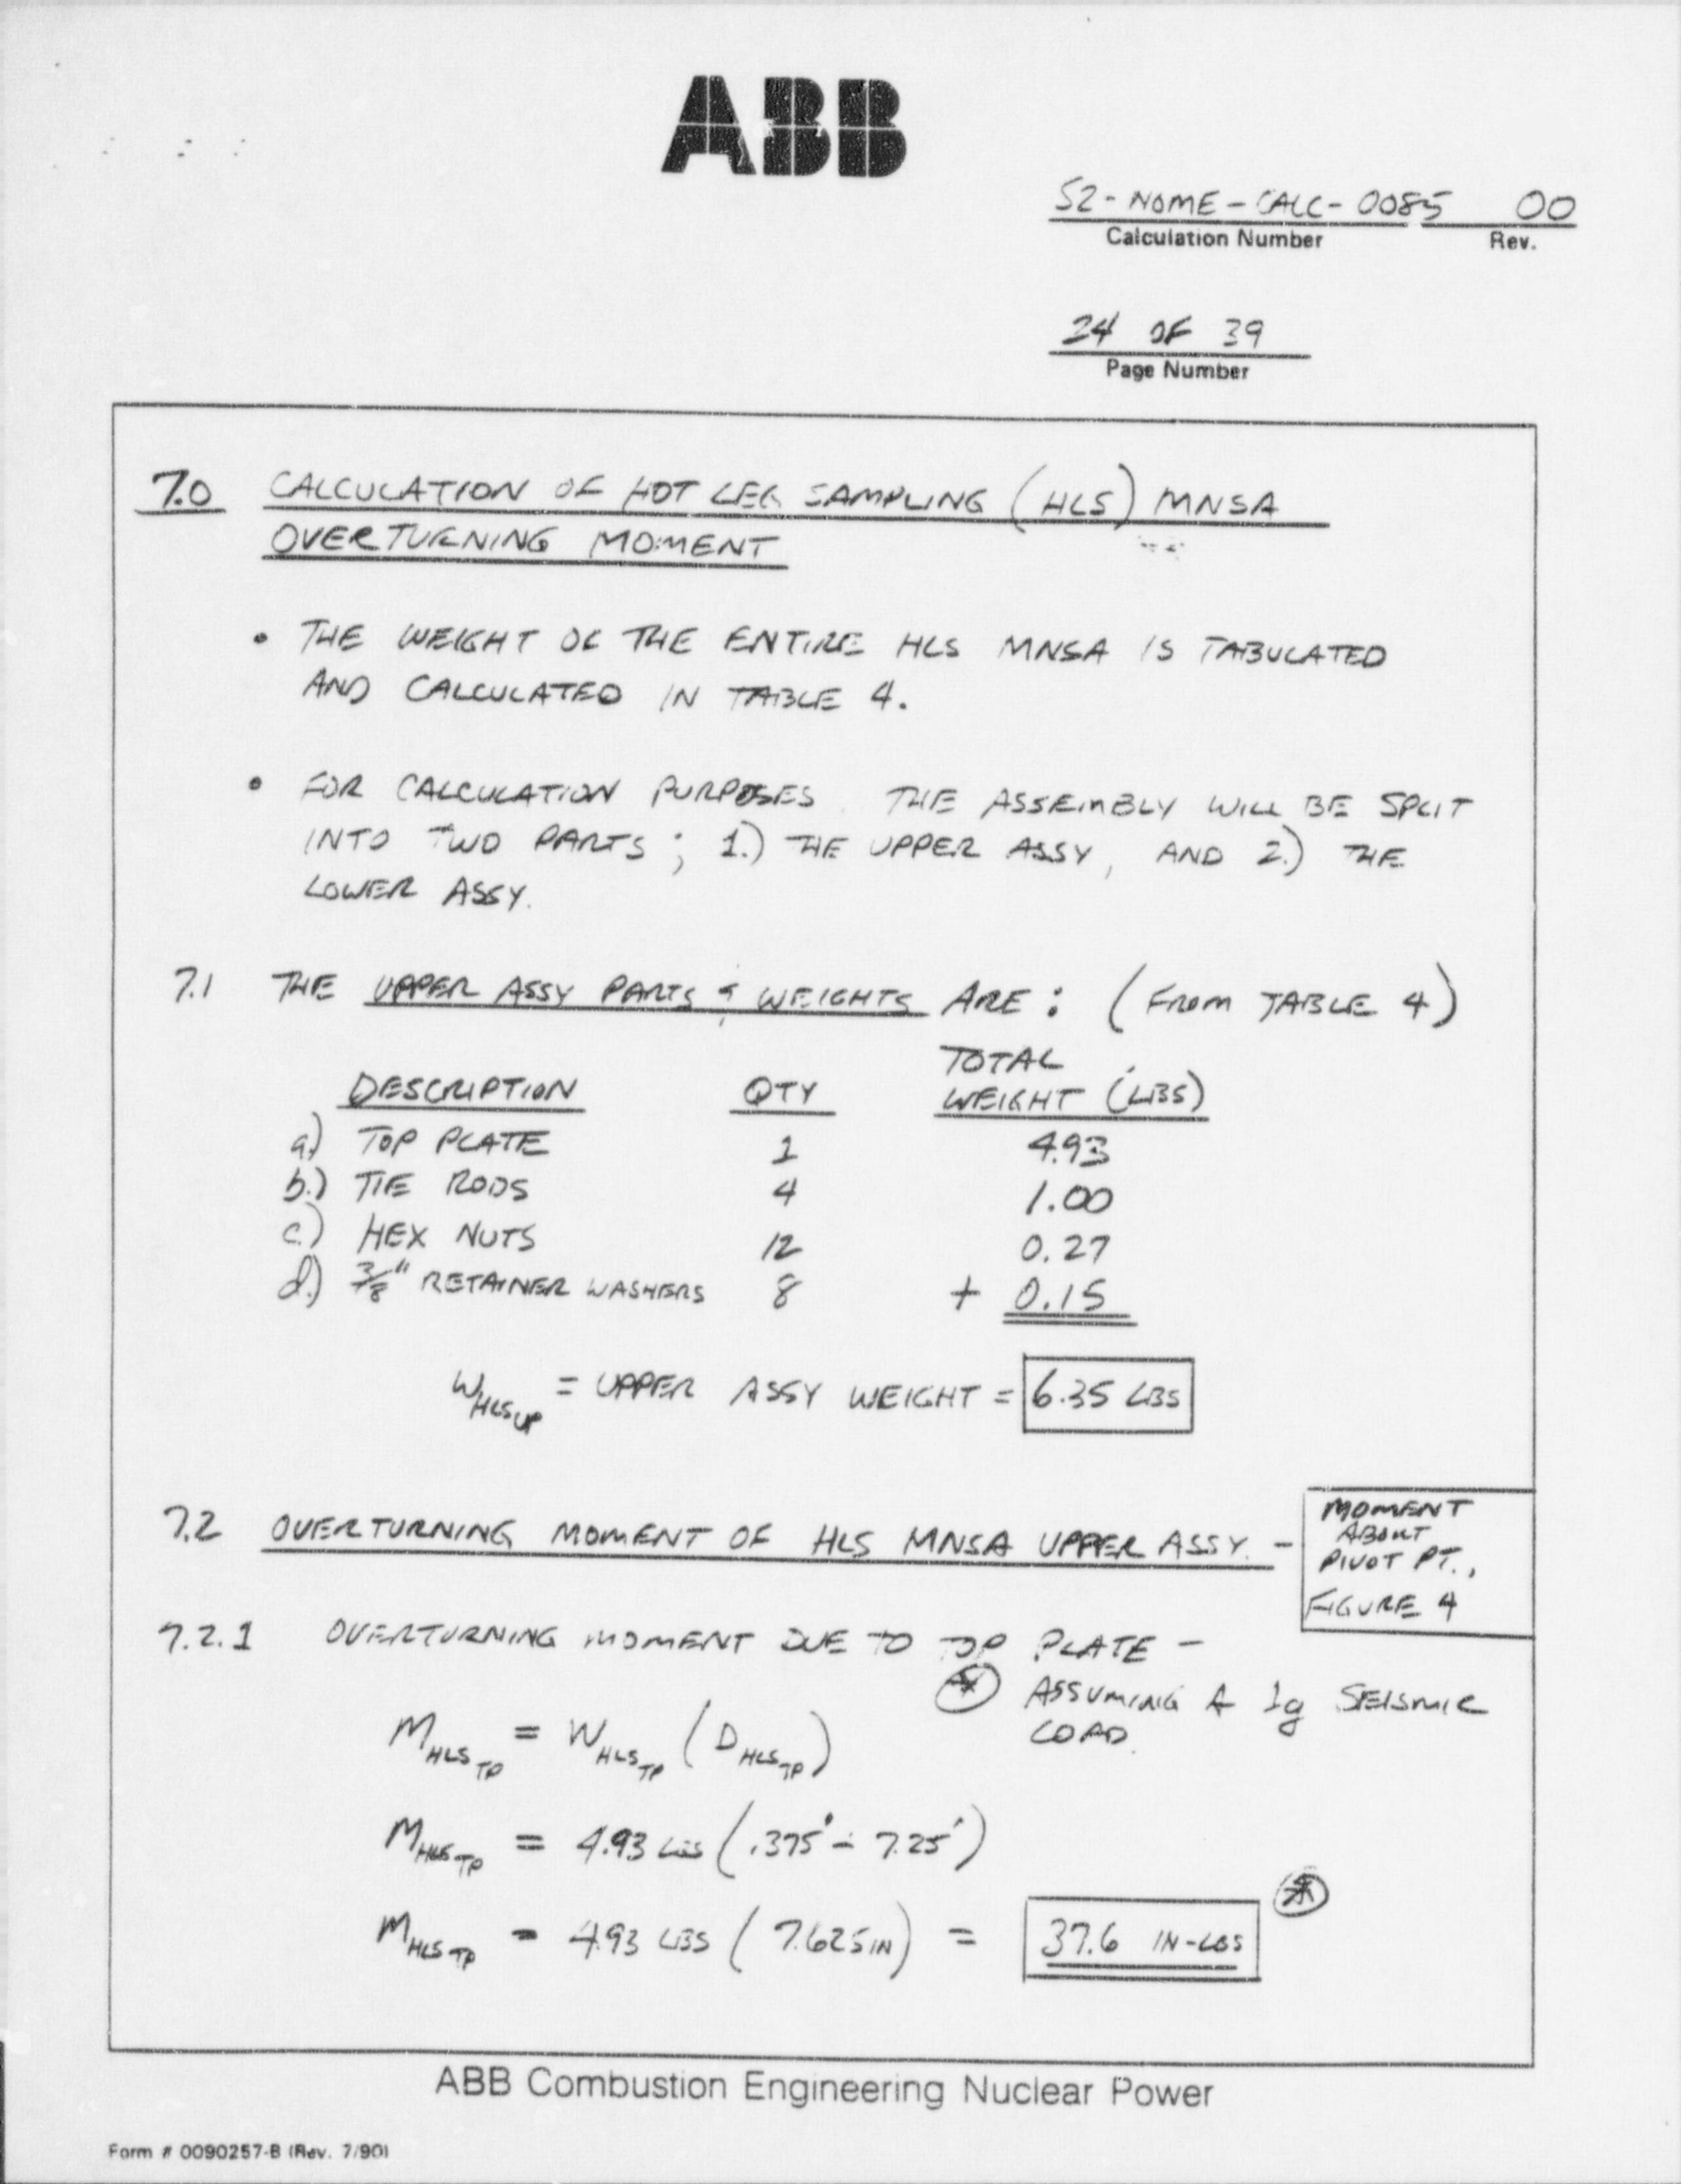 ABB
S2-NOME-CALC-0085 00
Calculation Number Rev.
24 OF 39
Page Number
7.0 CALCULATION OF HOT LEG SAMPLING (HLS) MNSA
OVERTURNING MOMENT
• THE WEIGHT OF THE ENTIRE HLS MNSA IS TABULATED
AND CALCULATED IN TABLE 4.
• FOR CALCULATION PURPOSES THE ASSEMBLY WILL BE SPLIT
INTO TWO PARTS; 1.) THE UPPER ASSY, AND 2.) THE
LOWER ASSY.
7.1 THE UPPER ASSY PARTS & WEIGHTS ARE: (FROM TABLE 4)
TOTAL
DESCRIPTION QTY WEIGHT (LBS)
a.) TOP PLATE 1 4.93
b.) TIE RODS 4 1.00
c.) HEX NUTS 12 0.27
d.) 3/8" RETAINER WASHERS 8 + 0.15
W HLS UP = UPPER ASSY WEIGHT = 6.35 LBS
7.2 OVERTURNING MOMENT OF HLS MNSA UPPER ASSY. -
MOMENT
ABOUT
PIVOT PT.,
FIGURE 4
7.2.1 OVERTURNING MOMENT DUE TO TOP PLATE -
* ASSUMING A 1g SEISMIC
LOAD.
M HLS TP = W HLS TP (D HLS TP)
M HLS TP = 4.93 LBS (.375" + 7.25")
M HLS TP = 4.93 LBS (7.625 IN) = 37.6 IN-LBS *
ABB Combustion Engineering Nuclear Power
Form # 0090257-B (Rev. 7/90)